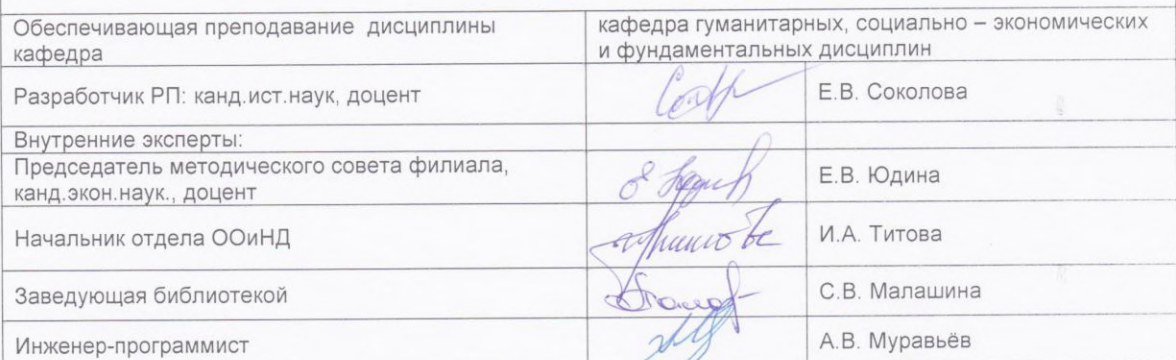 Обеспечивающая преподавание дисциплины
кафедра
кафедра гуманитарных, социально – экономических
и фундаментальных дисциплин
Разработчик РП: канд.ист.наук, доцент
Е.В. Соколова
Внутренние эксперты:
Председатель методического совета филиала,
канд.экон.наук., доцент
Е.В. Юдина
Начальник отдела ООиНД
И.А. Титова
Заведующая библиотекой
С.В. Малашина
Инженер-программист
А.В. Муравьёв